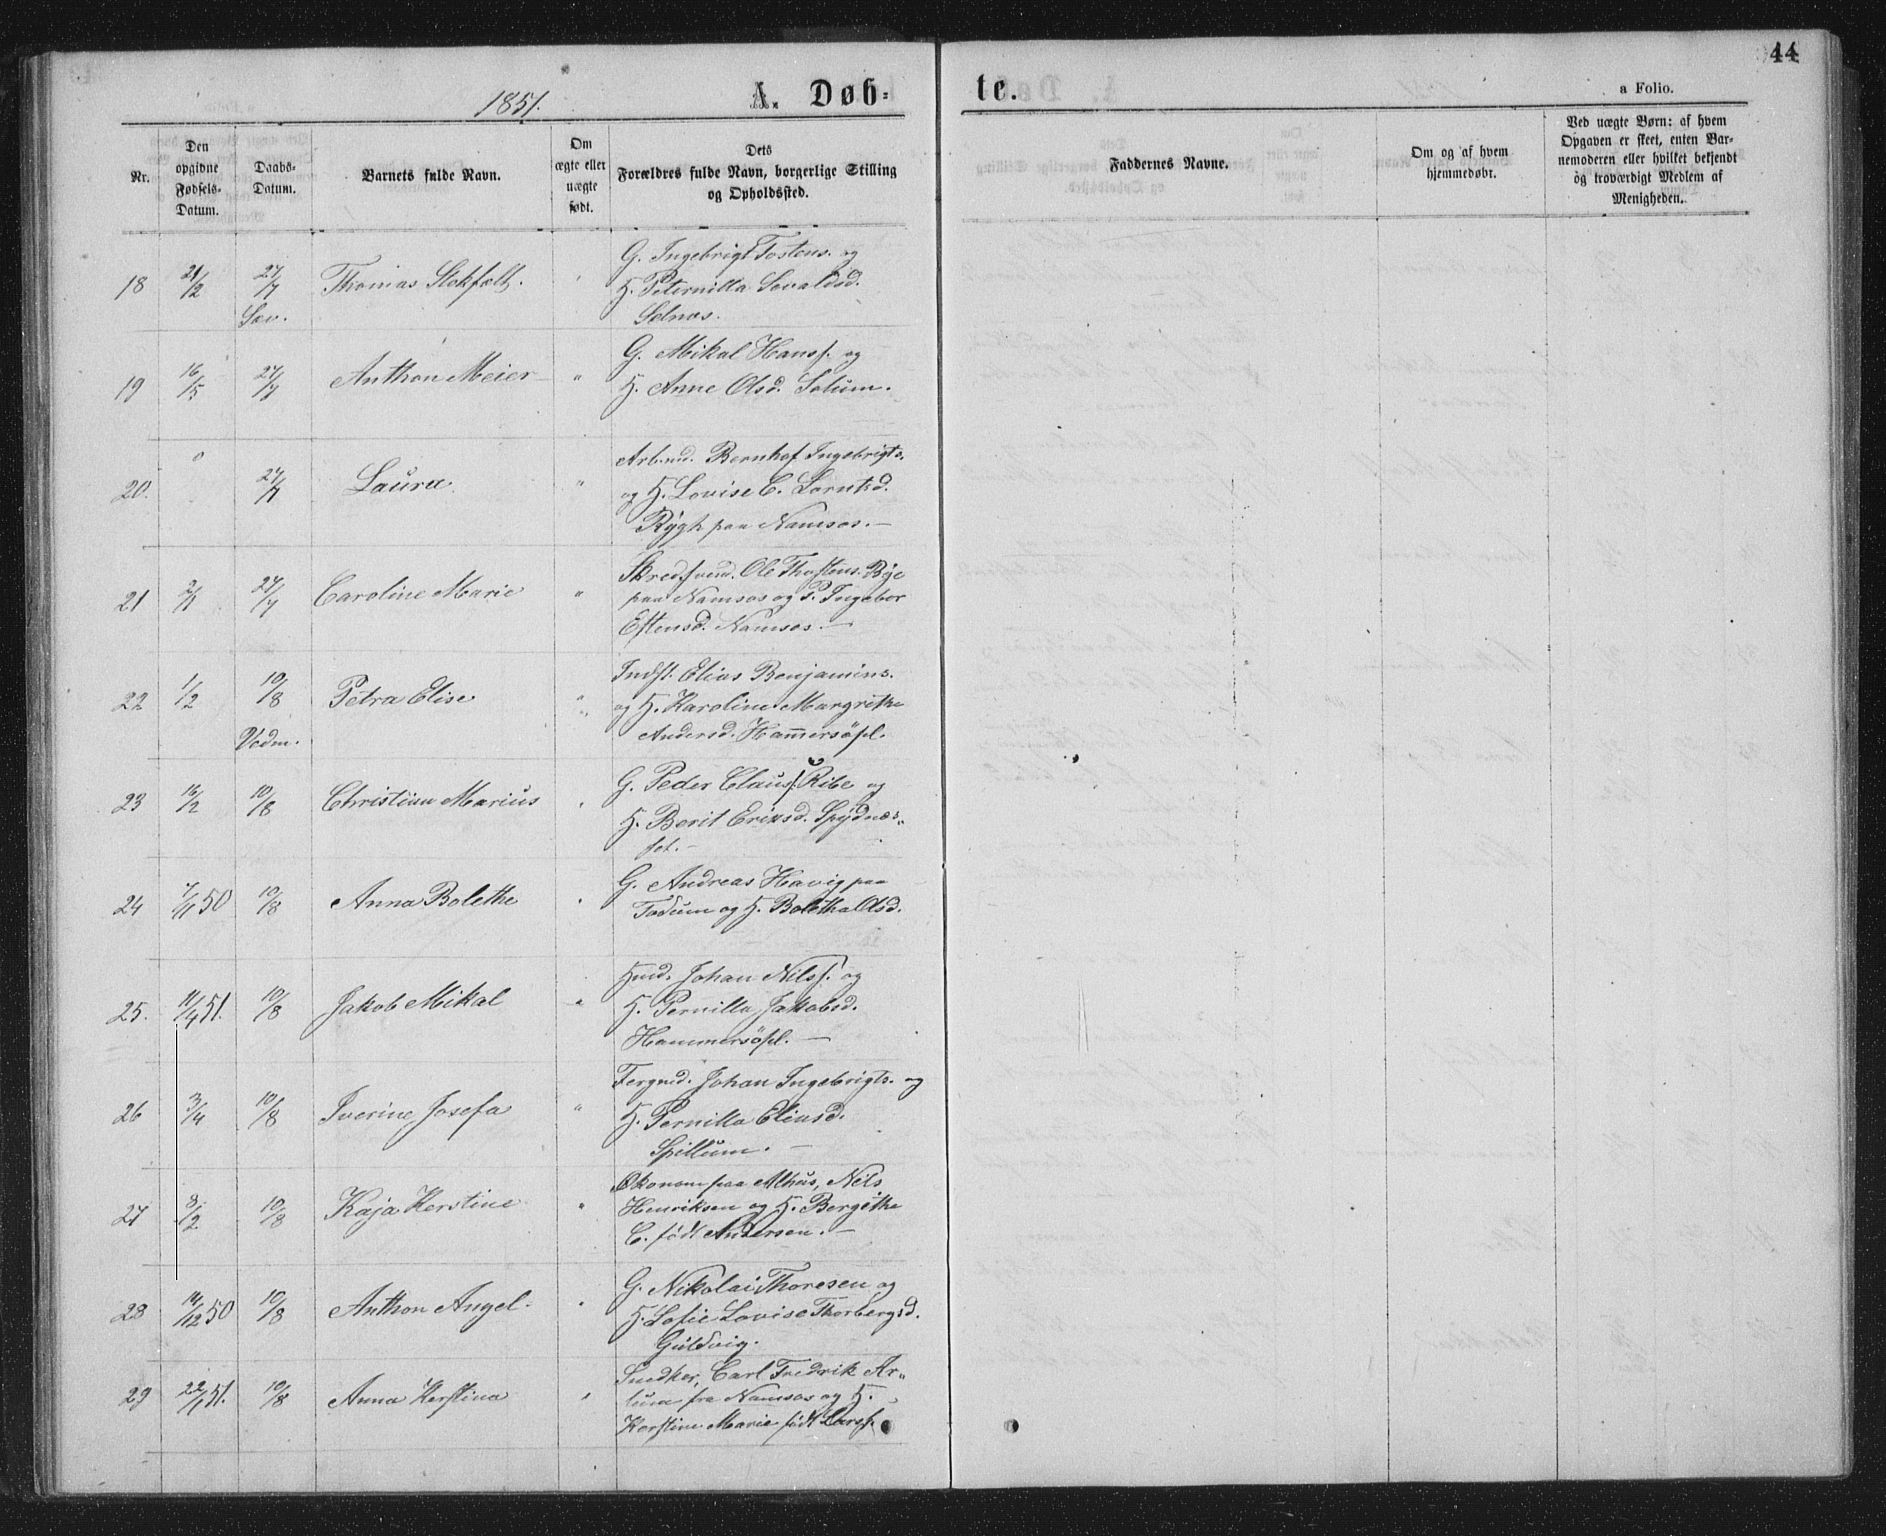 44
1851.
A. Døb=
te.
a Folio.
Nr.
Den opgivne Fødsels-Datum.
Daabs-Datum.
Barnets fulde Navn.
Om ægte eller uægte født.
Dets Forældres fulde Navn, borgerlige Stilling og Opholdssted.
Faddernes Navne.
Om og af hvem hjemmedøbt.
Ved uægte Børn: af hvem Opgaven er skeet, enten Barnemoderen eller hvilket bekjendt og troværdigt Medlem af Menigheden.
18 21/2 27/7 Thomas Stokfelt. " G. Ingebrigt Tostens. og
H. Peternilla Sevaldsd.
Sav. Selnæs.
19 16/5 27/7 Anthon Meier " G. Mikal Hansf. og
H. Anne Olsd. Solum.
20. 27/7 Laura " Arbmd. Bernhof Ingebrigts.
og H. Lovise C. Lorntsd.
Rygh paa Namsos.—
21 2/1 27/7 Caroline Marie " Skredsvend. Ole Thostens. Bye
paa Namsos og P. Ingebor
Estensd. Namsos.—
22 1/2 10/8 Petra Elise " Indst. Elias Benjamins.
og H. Karoline Margrethe
Vedm. Andersd. Hammersöpl.
23 16/2 10/8 Christian Marius " G. Peder Claus. Ribe og
H. Berit Eriksd. Spydnæs-
set.—
24 7/11 50 10/8 Anna Bolethe " G. Andreas Havig paa
Tadum og H. Boletha Olsd.
25. 11/4 51. 10/8 Jakob Mikal " Hmd. Johan Nilsf. og
H. Pernilla Jakobsd.
Hammersöpl.—
26 3/4 10/8 Iverine Josefa " Fergmd. Johan Ingebrigts. og
H. Pernilla Eliasd.
Spillum.—
27 8/2 10/8 Kaja Kerstine " Økonom paa Alhus, Nils
Henriksen og H. Bergithe
C. född Andersen.—
28 14/12 50 10/8 Anthon Angel. " G. Nikolai Thoresen og
H. Sofie Lovise Thorbergsd.
Guldvig.
29 22/1 51. 10/8 Anna Kerstina " Snedker, Carl Fredrik Ar-
lum fra Namsos og H.
Kerstine Marie född Larsf.